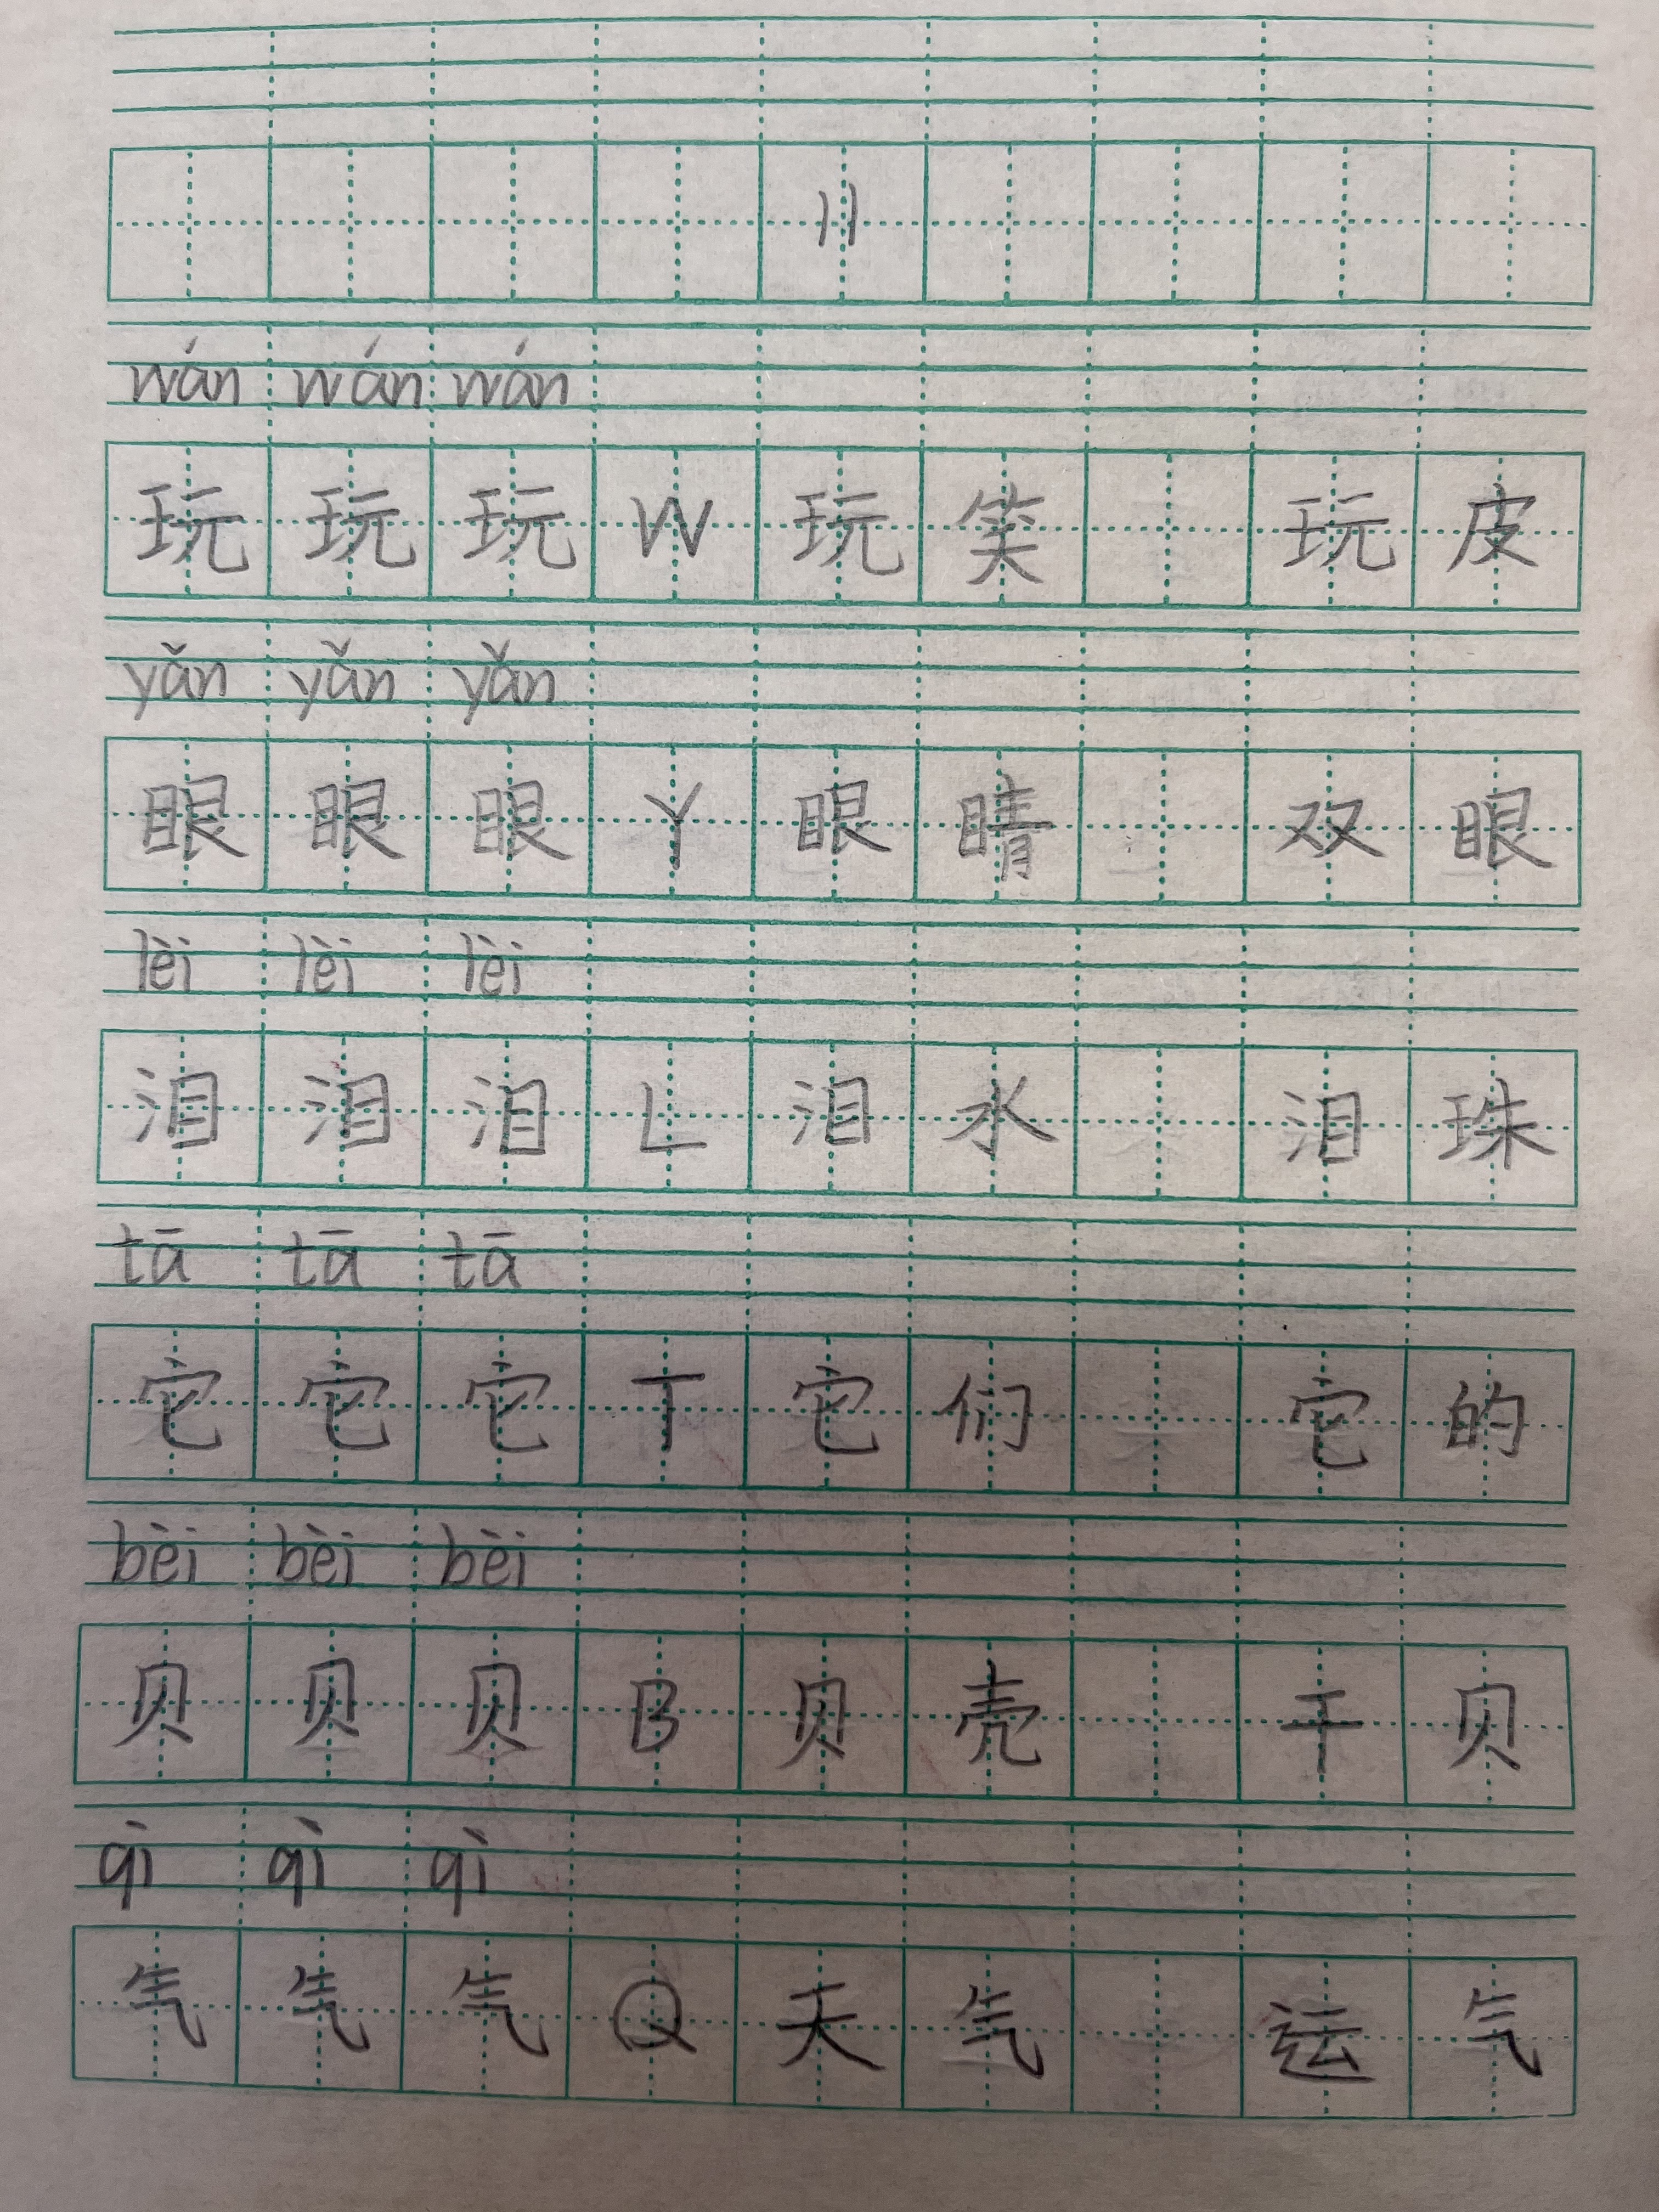 11
wán wán wán
玩 玩 玩 W 玩 笑 玩 皮
yǎn yǎn yǎn
眼 眼 眼 Y 眼 睛 双 眼
lèi lèi lèi
泪 泪 泪 L 泪 水 泪 珠
tā tā tā
它 它 它 T 它 们 它 的
bèi bèi bèi
贝 贝 贝 B 贝 壳 干 贝
qì qì qì
气 气 气 Q 天 气 运 气